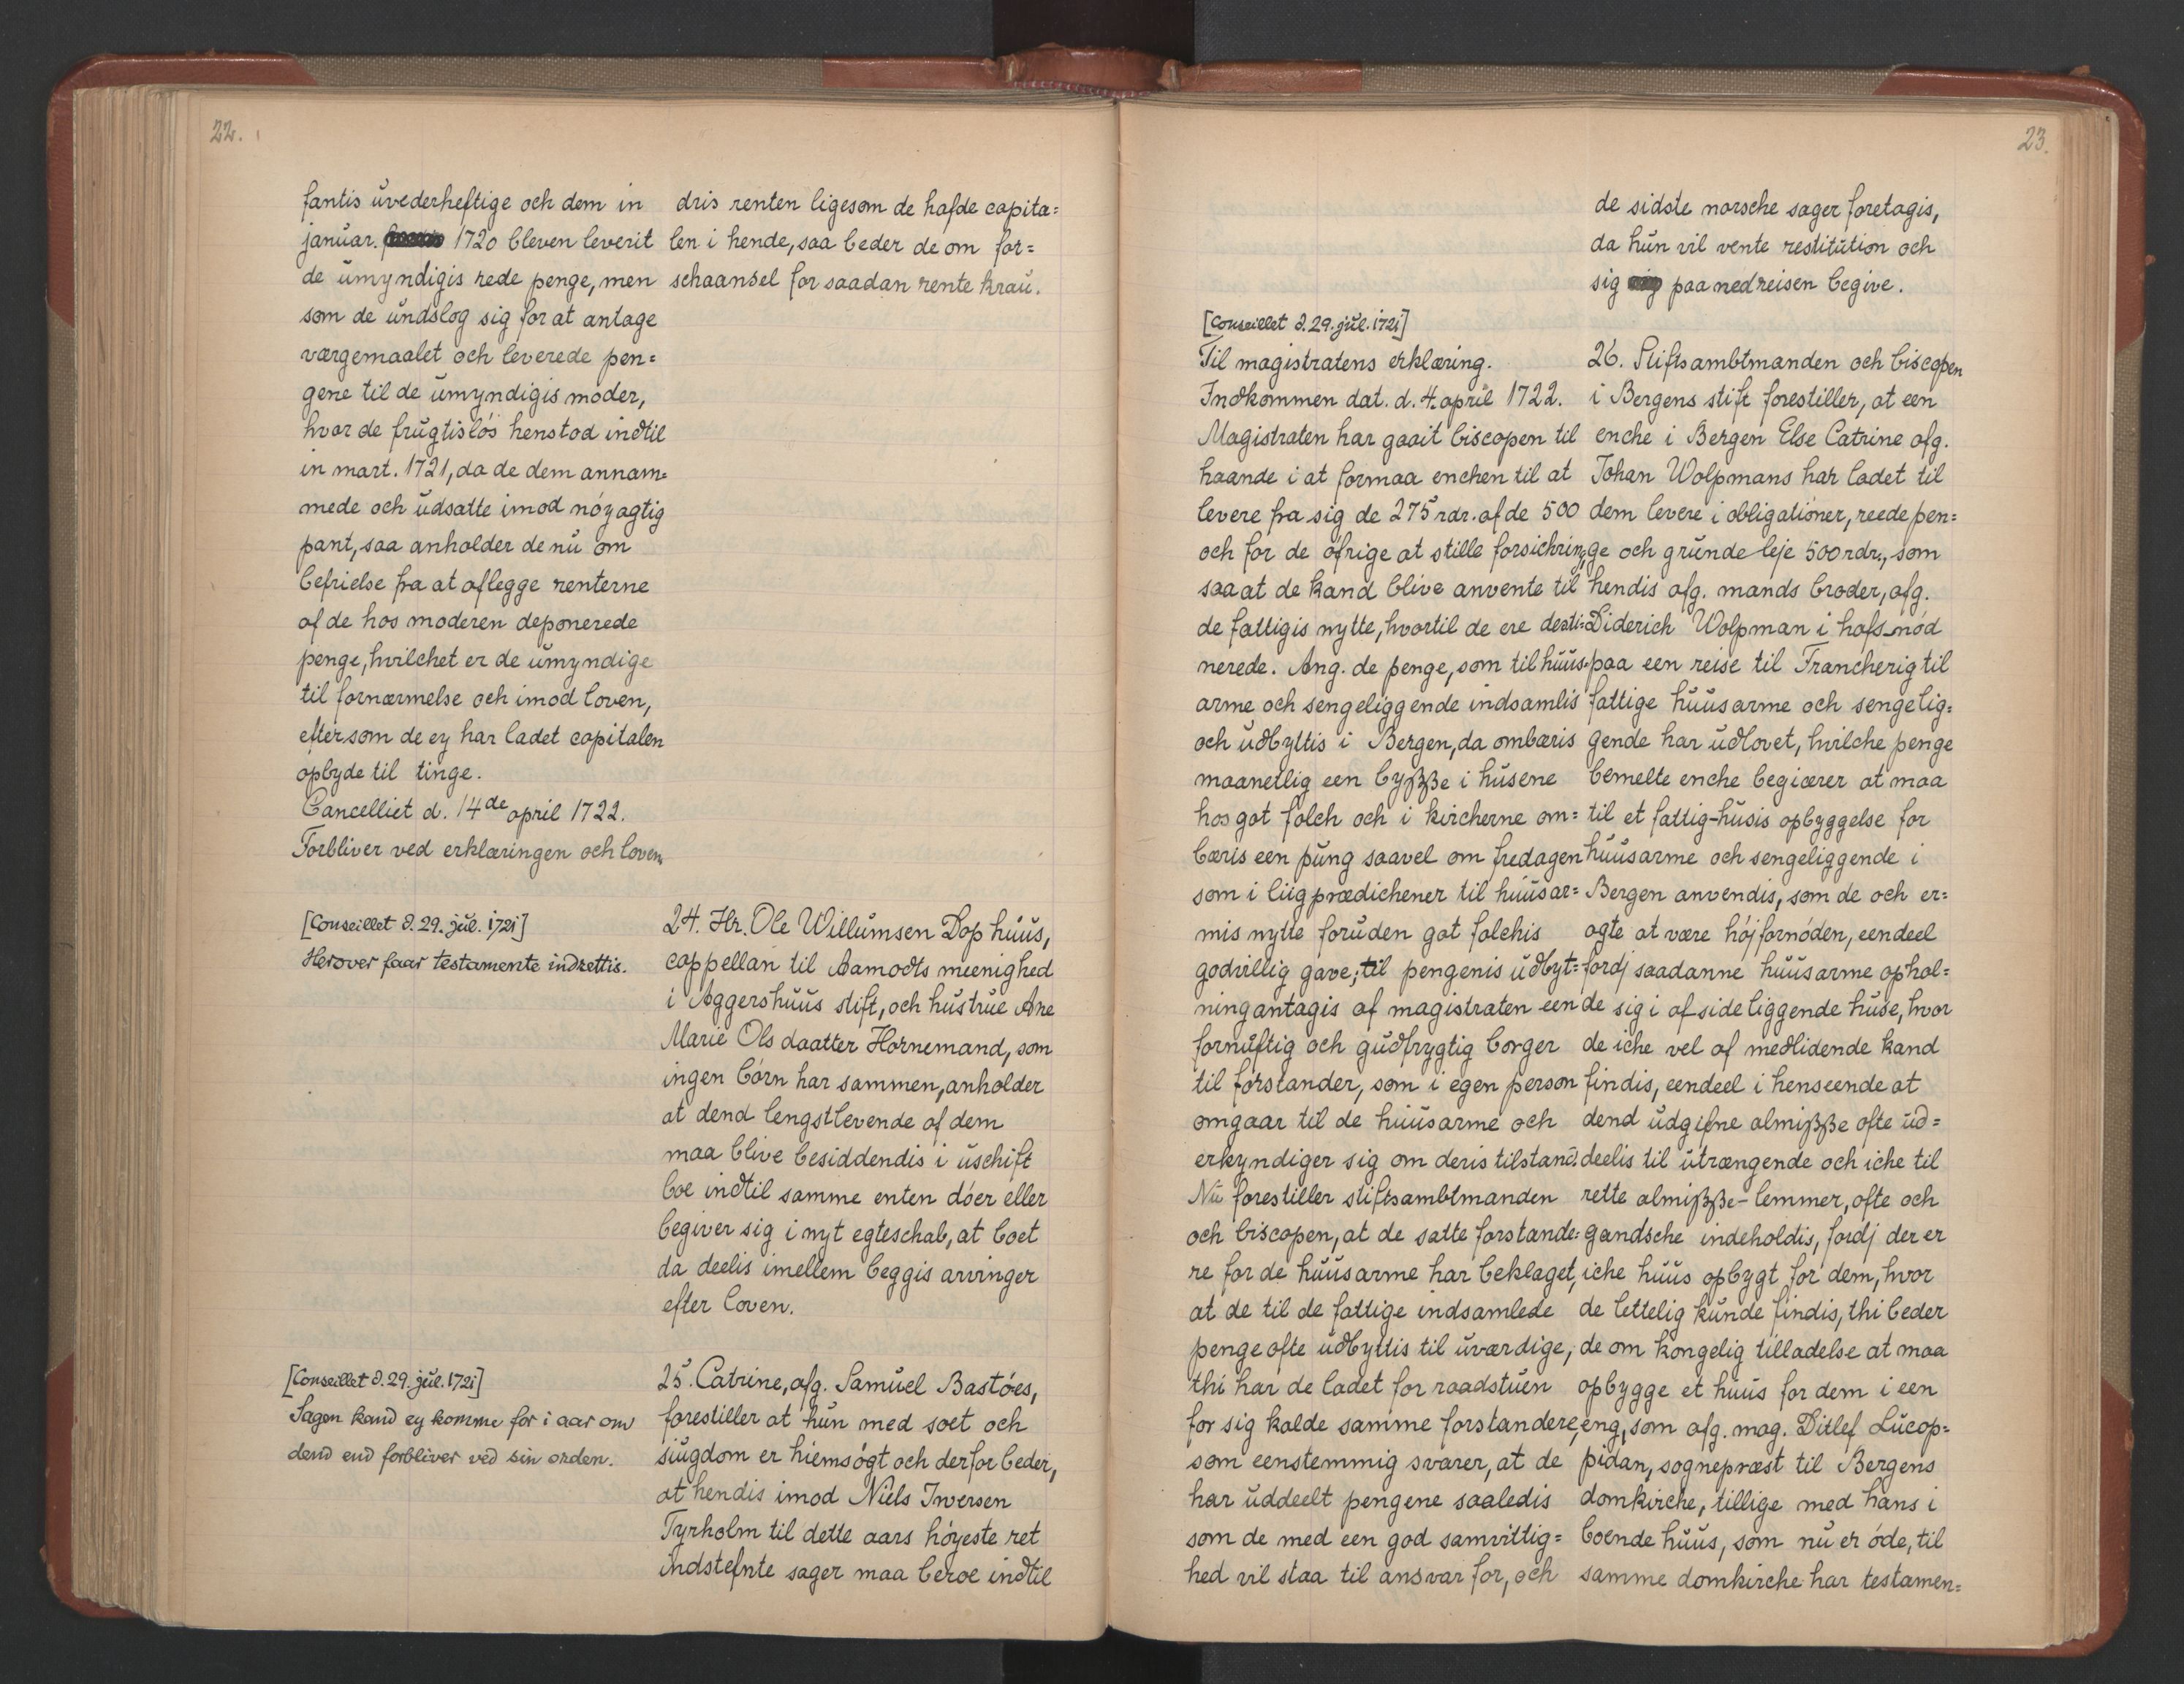 22.
fantis uvederheftige och dem in
januar. 1720 bleven leverit
de umyndigis rede penge, men
som de undslog sig for at antage
værgemaalet och leverede pen=
gene til de umyndigis moder,
hvor de frugtisløs henstod indtil
in mart. 1721, da de dem annam=
mede och udsatte imod nøyagtig
pant, saa anholder de nu om
befrielse fra at aflegge renterne
af de hos moderen deponerede
penge, hvilchet er de umyndige
til fornærmelse och imod loven,
eftersom de ey har ladet capitalen
opbyde til tinge.
Cancelliet d. 14de april 1722.
Forbliver ved erklæringen och loven.
dris renten ligesom de hafde capita=
len i hende, saa beder de om for=
schaansel for saadan rente krau.
[Conseillet d. 29. jul. 1721]
Herover faar testamente indrettis.
24. Hr. Ole Willumsen Dop huus,
cappellan til Aamodts meenighed
i Aggershuus stift, och hustrue Ane
Marie Ols daatter Hornemand, som
ingen børn har sammen, anholder
at dend lengstlevende af dem
maa blive besiddendis i uschift
boe indtil samme enten døer eller
begiver sig i nyt egteschab, at boet
da deelis imellem beggis arvinger
efter loven.
[Conseillet d. 29. jul. 1721]
Sagen kand ey komme for i aar om
dend end forbliver ved sin orden.
25. Catrine, afg. Samuel Bastøes,
forestiller at hun med soet och
siugdom er hiemsøgt och derfor beder,
at hendis imod Niels Iversen
Tyrholm til dette aars høyeste ret
indstefnte sager maa beroe indtil
23.
de sidste norsche sager foretagis,
da hun vil vente restitution och
sig paa nedreisen begive.
[Conseillet d. 29. jul. 1721]
Til magistratens erklæring.
Indkommen dat. d. 4. april 1722.
Magistraten har gaait biscopen til
haande i at formaa enchen til at
levere fra sig de 275 rdr. af de 500
och for de øfrige at stille forsichring,
saa at de kand blive anvente til
de fattigis nytte, hvortil de ere desti=
nerede. Ang. de penge, som til huus=
arme och sengeliggende indsamlis
och udbyttis i Bergen, da ombæris
maanetlig een bysse i husene
hos got folch och i kircherne om=
bæris een pung saavel om fredagen
som i liigprædichener til huusar=
mis nytte foruden got folchis
godvillig gave; til pengenis udbyt=
ning antagis af magistraten een
fornuftig och gudfrygtig borger
til forstander, som i egen person
omgaar til de huusarme och
erkyndiger sig om deris tilstand.
Nu forestiller stiftsambtmanden
och biscopen, at de satte forstande=
re for de huusarme har beklaget,
at de til de fattige indsamlede
penge ofte udbyttis til uværdige,
thi har de ladet for raadstuen
for sig kalde samme forstandere,
som eenstemmig svarer, at de
har uddeelt pengene saaledis
som de med een god samvittig=
hed vil staa til ansvar for, och
26. Stiftsambtmanden och biscopen
i Bergens stift forestiller, at een
enche i Bergen Else Catrine afg.
Johan Wolpmans har ladet til
dem levere i obligationer, reede pen=
ge och grunde leje 500 rdr., som
hendis afg. mands broder, afg.
Diderich Wolpman i hafsnød
paa een reise til Francherig til
fattige huusarme och sengelig=
gende har udlovet, hvilche penge
bemelte enche begiærer at maa
til et fattig-husis opbyggelse for
huusarme och sengeliggende i
Bergen anvendis, som de och er=
agte at være høj fornøden, eendeel
fordj saadanne huusarme ophol=
de sig i af side liggende huse, hvor
de iche vel af medlidende kand
findis, eendeel i henseende at
dend udgifne almisse ofte ud=
deelis til utrængende och iche til
rette almisse-lemmer, ofte och
gandsche indeholdis, fordj der er
iche huus opbygt for dem, hvor
de lettelig kunde findis, thi beder
de om kongelig tilladelse at maa
opbygge et huus for dem i een
eng, som afg. mag. Ditlef Lucop=
pidan, sognepræst til Bergens
domkirche, tillige med hans i
boende huus, som nu er øde, til
samme domkirche har testamen=